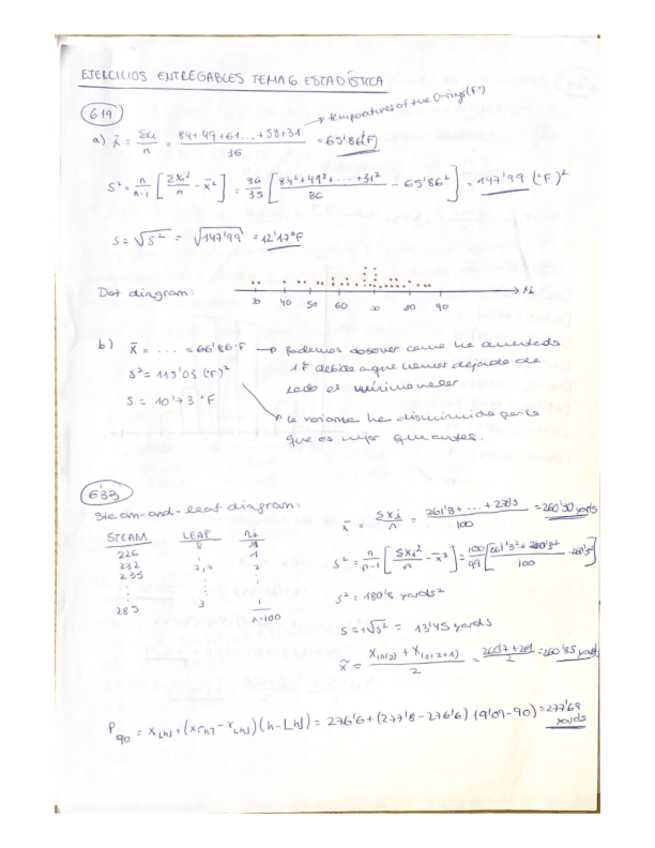 EJERCICIOS ENTREGABLES TEMA 6 ESTADÍSTICA
6.19
→ temperatures of the O-rings (F°)
a) x̄ = Σxi / n = 84+49+61...+58+31 / 36 = 65'86(°F)
S² = n/n-1 [Σxi²/n - x̄²] = 36/35 [84²+49²+...+31²/36 - 65'86²] = 147'99 (°F)²
S = √S² = √147'99 = 12'17°F
Dot diagram:
30 40 50 60 70 80 90 xi
b) x̄ = ... = 66'86°F → Podemos observar como ha aumentado
1°F debido a que hemos dejado de
lado el mínimo valor
S² = 115'05 (°F)²
S = 10'73 °F
→ la varianza ha disminuido por lo
que es mejor que antes.
6.33
Steam-and-leaf diagram:
STEAM LEAF ni
226 8 1
232 1
235 7,7 2
283 3 1
n=100
x̄ = Σxi / n = 261'3+...+ / 100 = 260'30 yards
S² = n/n-1 [Σxi²/n - x̄²] = 100/99
S² = 180'8 yards²
S = +√S² = 13'45 yards
x̃ = X(n/2) + X(n/2+1) / 2 = / 2 = 260'85 yards
P90 = x⌊h⌋ + (x⌈h⌉ - x⌊h⌋)(h-⌊h⌋) = 276'6+(277'8-276'6) (9'09-90) = 277'69
yards